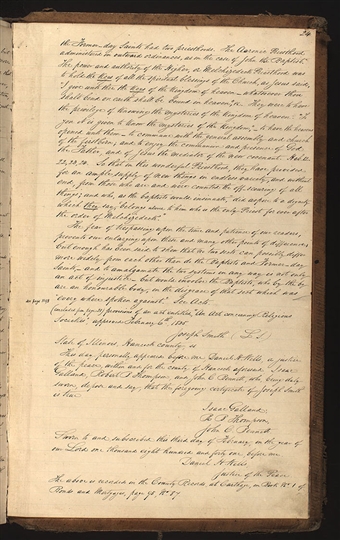 24
the Former-day Saints had two priesthoods. The Aaronic Priesthood
administered in outward ordinances, as in the case of John the Baptist.
The power and authority of the Higher, or Melchizedek Priesthood was
to hold the keys of all the spiritual blessings of the Church, as Jesus said,
I give unto thee the keys of the Kingdom of heaven: whatsoever thou
shalt bind on earth shall be bound in heaven, &c. They were to have
the privilege of knowing the mysteries of the Kingdom of heaven: "To
you it is given to know the mysteries of the Kingdom," to have the heavens
opened unto them to commune with the general assembly and church
of the firstborn, and to enjoy the communion and presence of God
the Father, and of Jesus the mediator of the new covenant. Heb.
22, 23, 24. So that in this wonderful Priesthood, they have provisions
for an ample supply of new things in endless variety, and without
end, from those who are and were counted the off scouring of all
things; and who, as the Baptists would insinuate, did aspire to a dignity
which they say, belongs alone to him who is the only Priest for ever after
the order of Melchizedek."
The fear of trespassing upon the time and patience of our readers,
prevents our enlarging upon these and many other points of difference;
but enough has been said to show that no two sects can possibly differ
more widely from each other than do the Baptists and Former-day
Saints, and to amalgamate the two systems in any way is not only
an act of injustice, but would involve the Baptists, who by the by
are an honourable body, in the disgrace of that sect which was
"every where spoken against". See Acts
provisions of an act entitled, "An Act concerning Religious
Societies," approved February 6th, 1835
Joseph Smith (L.S.)
State of Illinois, Hancock county, ss
This day personally appeared before me, Daniel H. Wells, a justice
of the peace, within and for the county of Hancock aforesaid, Isaac
Galland, Robert B. Thompson, and John C. Bennett, who being duly
sworn, depose and say, that the foregoing certificate of Joseph Smith
is true
Isaac Galland
R. B. Thompson
John C. Bennett
Sworn to and subscribed this third day of February, in the year of
our Lord one thousand eight hundred and forty one, before me
Daniel H. Wells
Justice of the Peace
The above is recorded in the County Records at Carthage, in Book No. 1 of
Bonds and Mortgages, page 95, No. 87